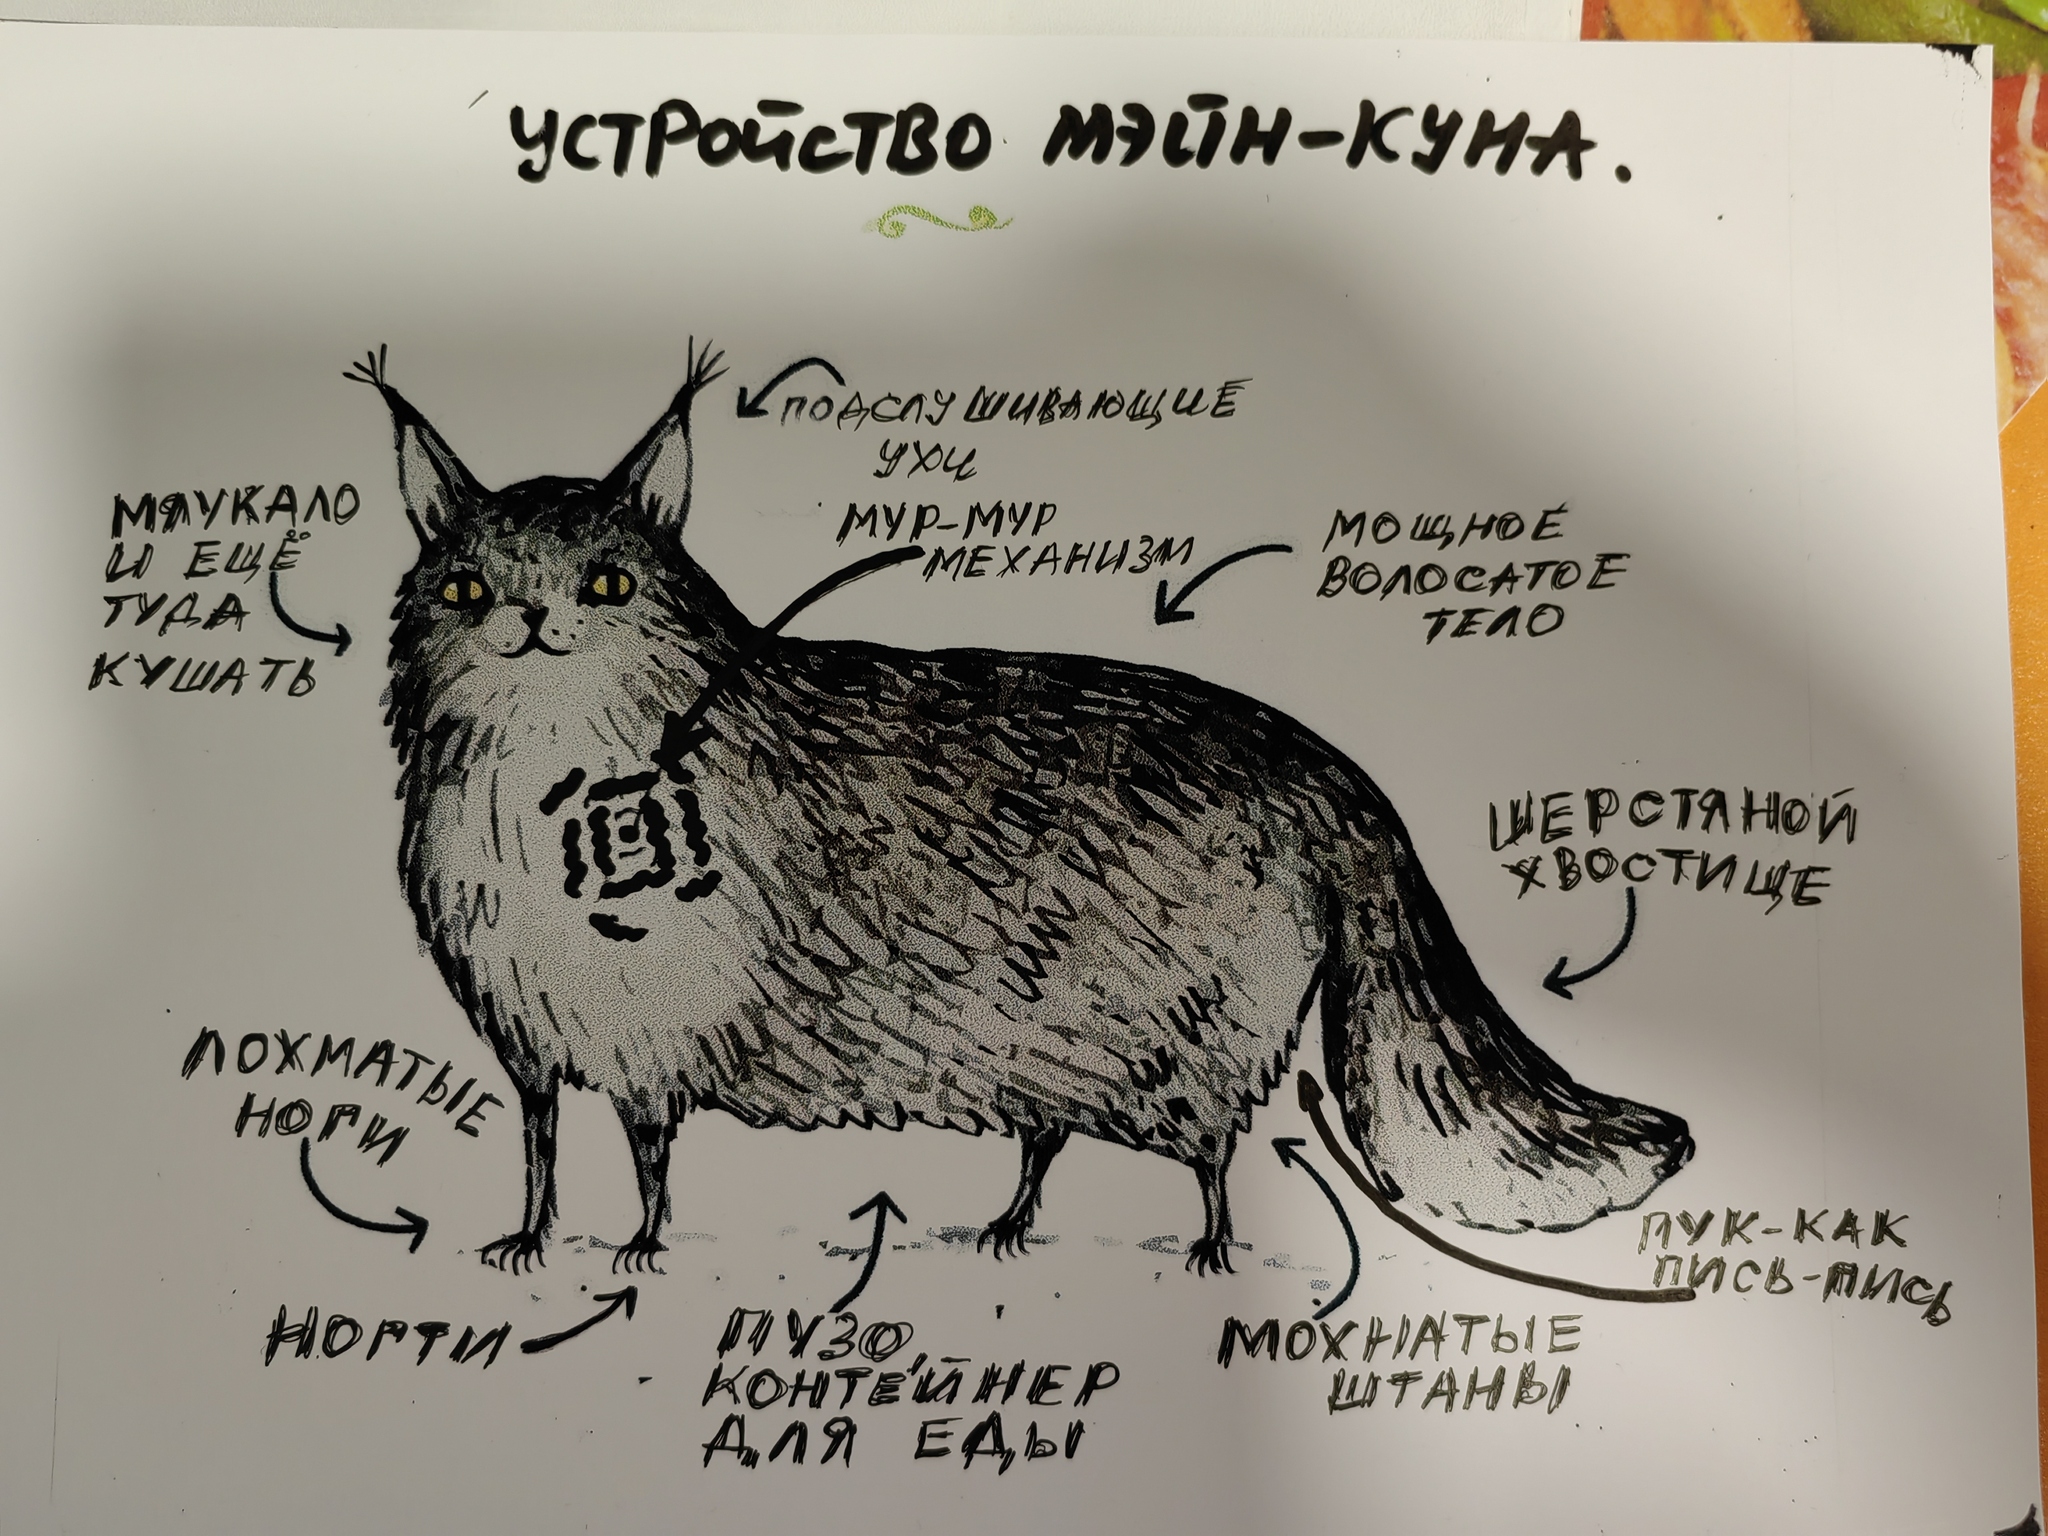 УСТРОЙСТВО МЭЙН-КУНА.
ПОДСЛУШИВАЮЩИЕ
УХИ
МЯУКАЛО
И ЕЩЁ
ТУДА
КУШАТЬ
МУР-МУР
МЕХАНИЗМ
МОЩНОЕ
ВОЛОСАТОЕ
ТЕЛО
ШЕРСТЯНОЙ
ХВОСТИЩЕ
ЛОХМАТЫЕ
НОГИ
НОГТИ
ПУЗО,
КОНТЕЙНЕР
ДЛЯ ЕДЫ
МОХНАТЫЕ
ШТАНЫ
ПУК-КАК
ПИСЬ-ПИСЬ